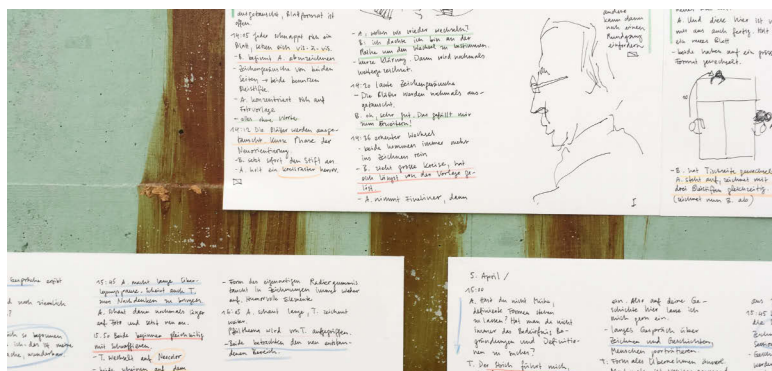 ausgetauscht, Blattformat ist
offen.
14:05 jeder schnappt sich ein
Blatt, sehen sich vis-à-vis.
- B. beginnt A. abzuzeichnen
- Zeichengeräusche von beiden
Seiten → beide benutzen
Bleistifte.
- A. konzentriert sich auf
Fotovorlage
- alles ohne Worte.
14:12 Die Blätter werden ausge-
tauscht. Kurze Phase der
Neuorientierung.
- B. setzt sofort den Stift an
- A. holt ein
- A: wollen wir wieder wechseln?
B: ich dachte ich bin an der
Reihe um den Wechsel zu bestimmen.
- kurze Klärung. Dann wird nochmals
weiter gezeichnet.
14:20 laute Zeichengeräusche
- Die Blätter werden nochmals aus-
getauscht.
B: oh, sehr gut. Das gefällt mir
zum Erweitern!
14:36 erneuter Wechsel
- beide kommen immer mehr
ins Zeichnen rein
- B. zieht grosse Kreise, hat
sich längst von der Vorlage ge-
löst
- A. nimmt Fineliner, dann
I
andere
kann dann
nach einem
Rundgang
einfordern
A: Und diese hier ist von
mir aus auch fertig. Holt
ein neues Blatt
- beide haben auf ein grosses
Format gewechselt.
- B. hat Tischseite gewechselt
A. steht auf, zeichnet mit
drei Bleistiften gleichzeitig
(zeichnet nun B. ab)
Gespräche ergibt
und noch ziemlich
so begonnen
ich. das ist meine
wunderbar
15:45 A macht lange Über-
legungspause. Scheint auch T.
zum Nachdenken zu bringen.
A. schaut dann nochmals länger
auf Foto und setzt neu an.
15:50 Beide beginnen gleichzeitig
mit Schraffieren.
- T. wechselt auf Neocolor
- beide scheinen auf dem
- Form des eigenartigen Radiergummis
taucht in Zeichnungen immer wieder
auf. humorvolle Elemente
16:05 A. schaut lange, T. zeichnet
weiter.
Pilzthema wird von T. aufgegriffen
- Beide betrachten den neu entstan-
denen Bereich.
5. April /
15:00
A. Hast du nicht Mühe,
definierte Formen stehen
zu lassen? Hat man da nicht
immer das Bedürfnis Be-
gründungen und Definitio-
nen zu suchen?
T. Der Strich führt mich,
ein. Also auf deine Ge-
schichte hier lasse ich
mich gern ein.
- langes Gespräch über
Zeichnen und Geschichten.
Menschen porträtieren
T: Formales Übernehmen